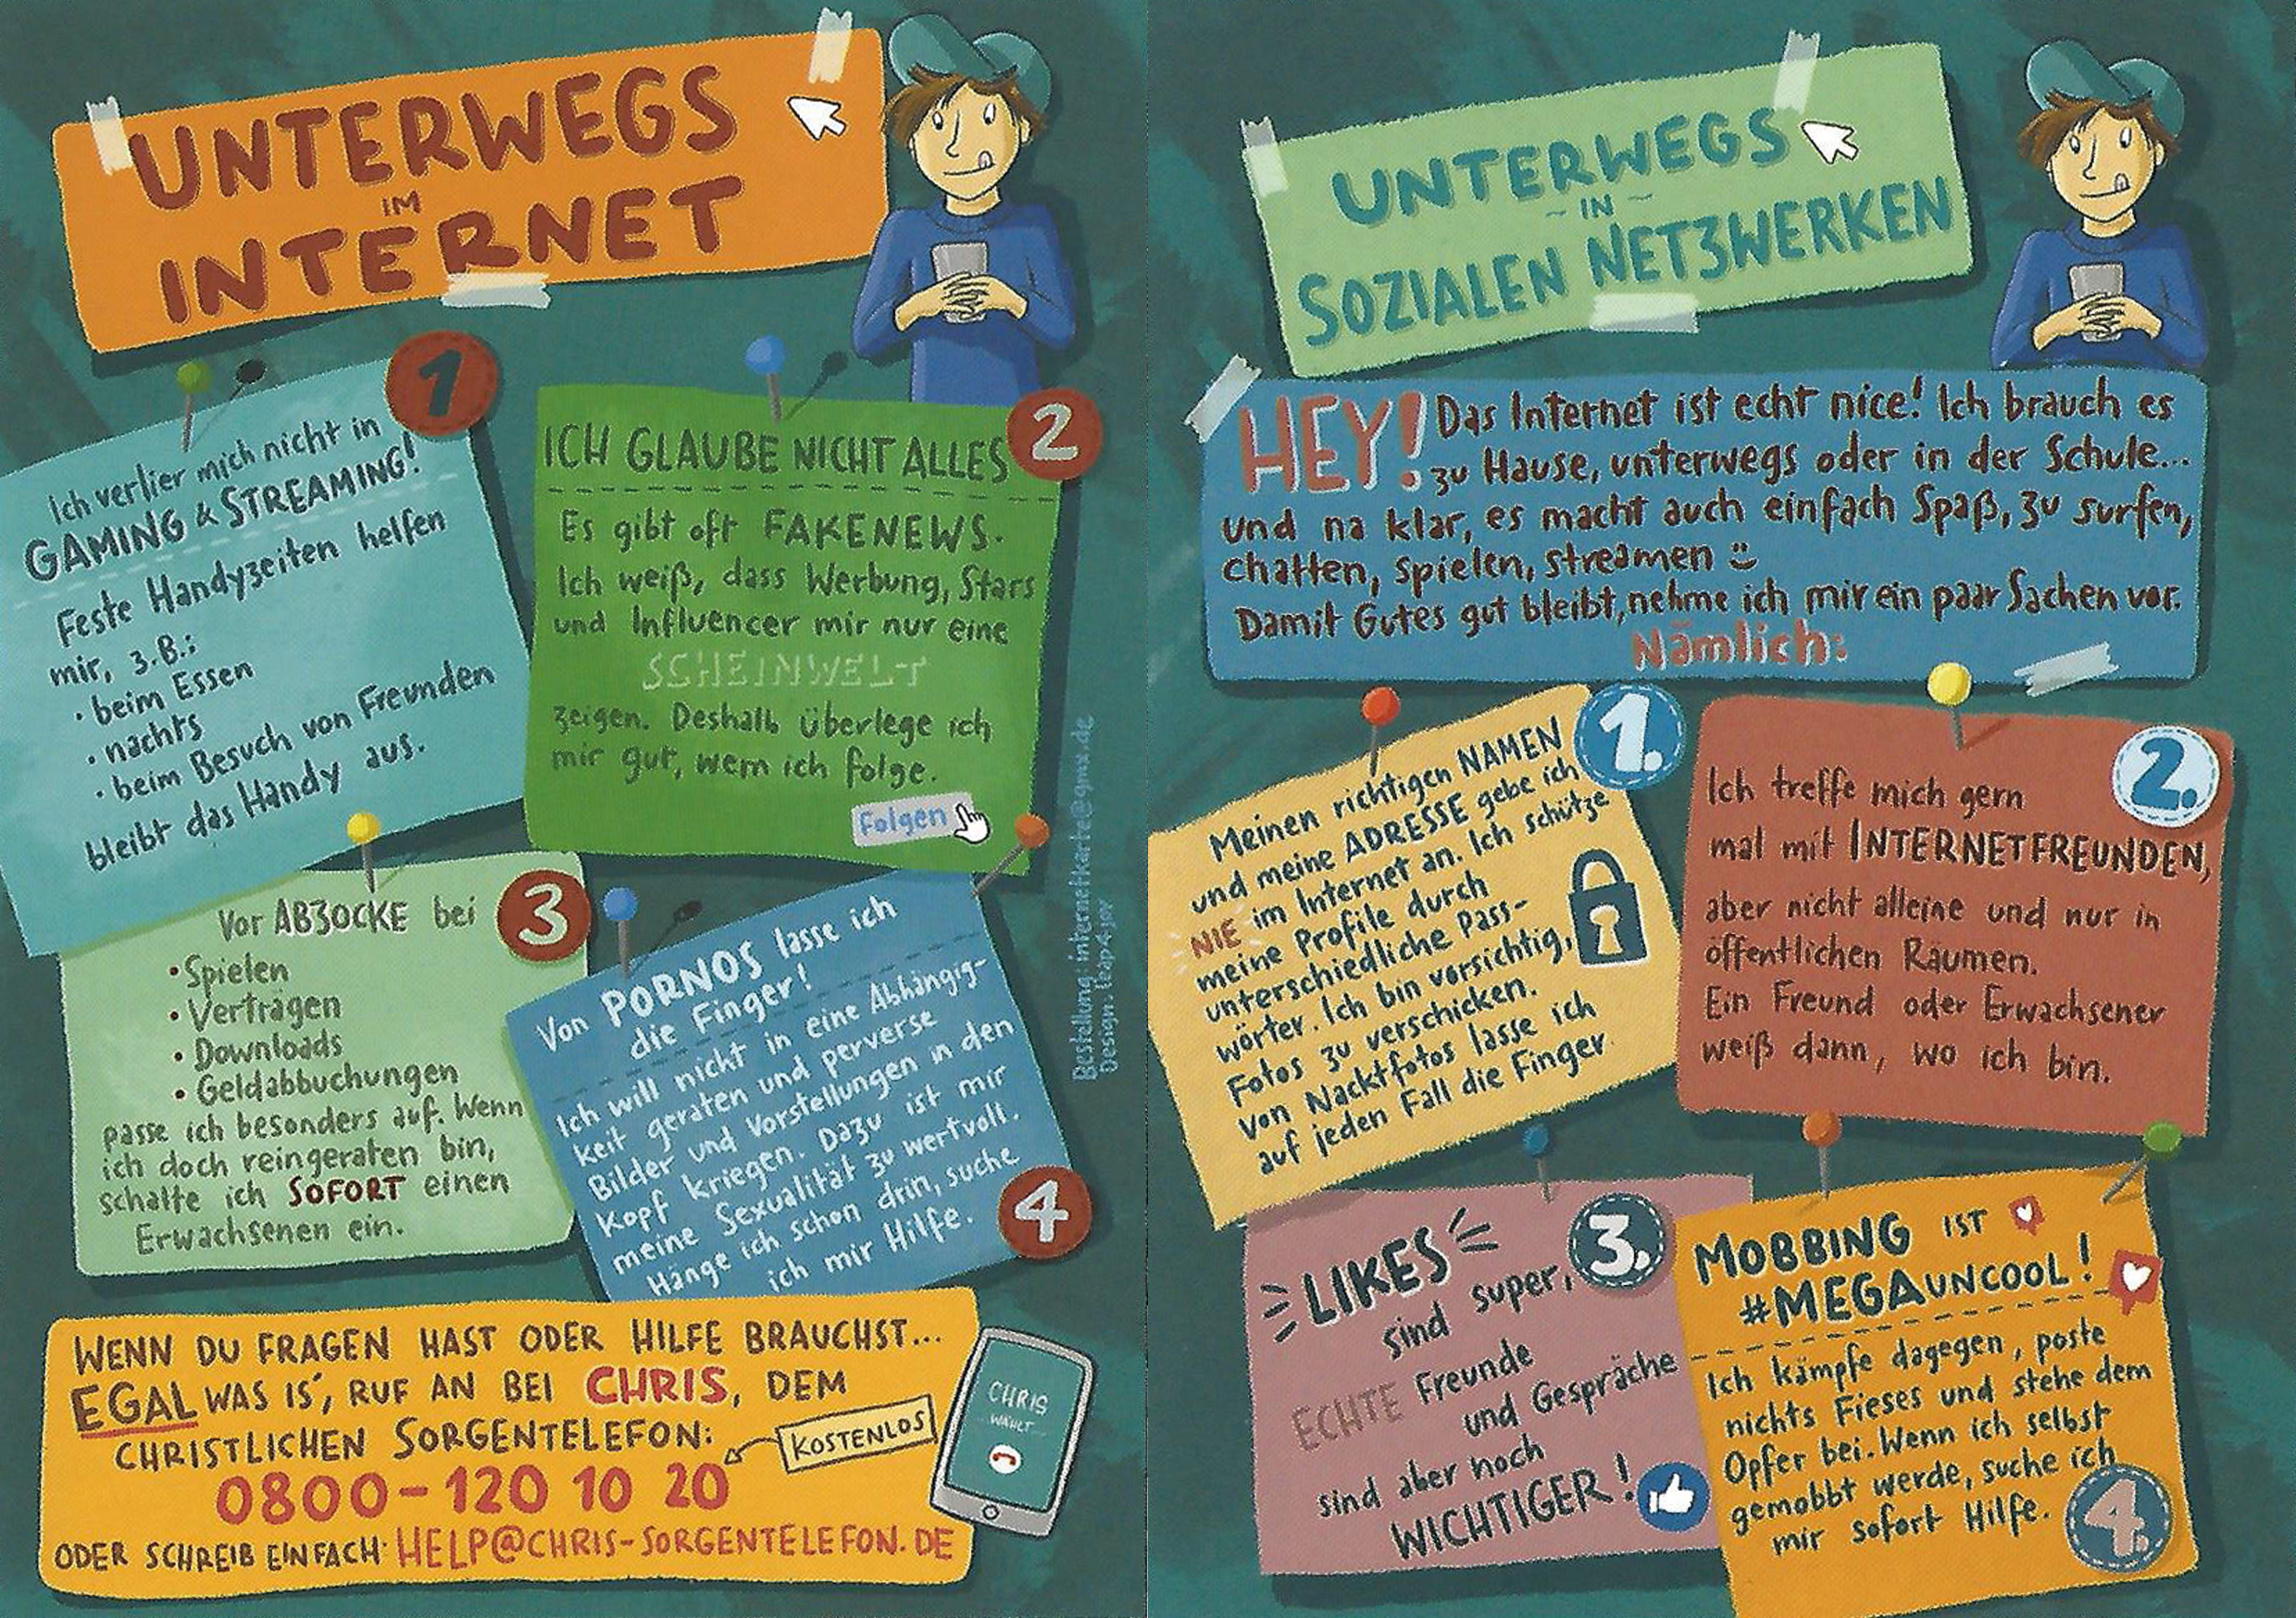 UNTERWEGS
IM
INTERNET
1
Ich verlier mich nicht in
GAMING & STREAMING!
Feste Handyzeiten helfen
mir, z.B.:
• beim Essen
• nachts
• beim Besuch von Freunden
bleibt das Handy aus.
2
ICH GLAUBE NICHT ALLES
Es gibt oft FAKENEWS.
Ich weiß, dass Werbung, Stars
und Influencer mir nur eine
SCHEINWELT
zeigen. Deshalb überlege ich
mir gut, wem ich folge.
Folgen
3
Vor ABZOCKE bei
• Spielen
• Verträgen
• Downloads
• Geldabbuchungen
passe ich besonders auf. Wenn
ich doch reingeraten bin,
schalte ich SOFORT einen
Erwachsenen ein.
Von PORNOS lasse ich
die Finger!
Ich will nicht in eine Abhängig-
keit geraten und perverse
Bilder und Vorstellungen in den
Kopf kriegen. Dazu ist mir
meine Sexualität zu wertvoll.
Hänge ich schon drin, suche
ich mir Hilfe.
4
Bestellung: internetkarte@gmx.de
Design: leap4joy
WENN DU FRAGEN HAST ODER HILFE BRAUCHST...
EGAL WAS IS', RUF AN BEI CHRIS, DEM
CHRISTLICHEN SORGENTELEFON:
KOSTENLOS
0800-120 10 20
ODER SCHREIB EINFACH: HELP@CHRIS-SORGENTELEFON.DE
CHRIS
WÄHLT...
UNTERWEGS
~ IN ~
SOZIALEN NETZWERKEN
HEY! Das Internet ist echt nice! Ich brauch es
zu Hause, unterwegs oder in der Schule...
Und na klar, es macht auch einfach Spaß, zu surfen,
chatten, spielen, streamen
Damit Gutes gut bleibt, nehme ich mir ein paar Sachen vor.
Nämlich:
1.
Meinen richtigen NAMEN
und meine ADRESSE gebe ich
NIE im Internet an. Ich schütze
meine Profile durch
unterschiedliche Pass-
wörter. Ich bin vorsichtig,
Fotos zu verschicken.
Von Nacktfotos lasse ich
auf jeden Fall die Finger.
2.
Ich treffe mich gern
mal mit INTERNETFREUNDEN,
aber nicht alleine und nur in
öffentlichen Räumen.
Ein Freund oder Erwachsener
weiß dann, wo ich bin.
3.
LIKES
sind super,
ECHTE Freunde
und Gespräche
sind aber noch
WICHTIGER!
MOBBING IST
#MEGAUNCOOL!
Ich kämpfe dagegen, poste
nichts Fieses und stehe dem
Opfer bei. Wenn ich selbst
gemobbt werde, suche ich
mir sofort Hilfe.
4.